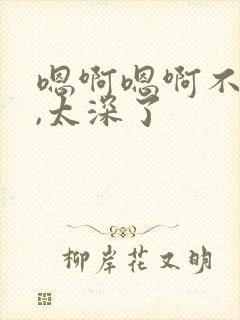 嗯啊嗯啊不
,太深了
柳岸花又明